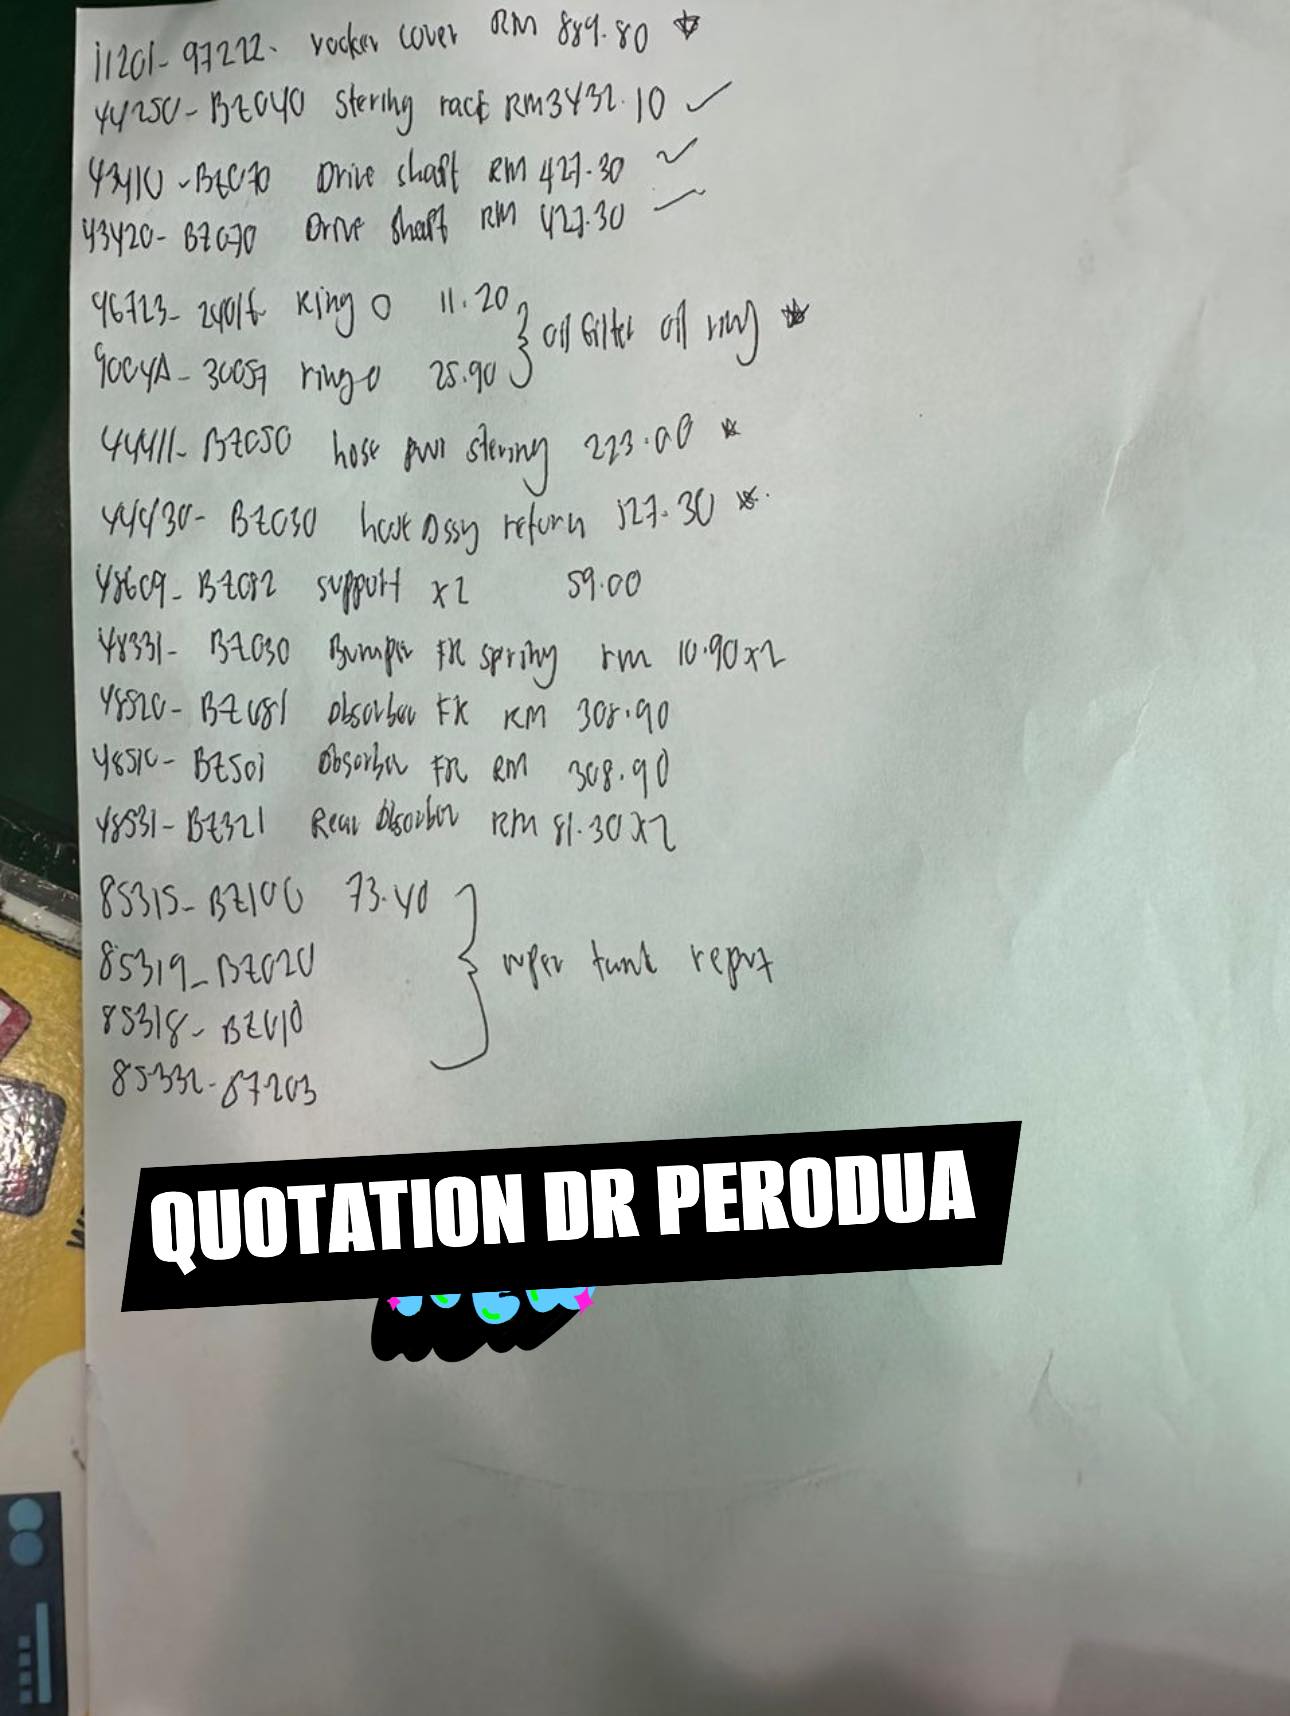 11201-97222. rocker cover RM 889.80
44250-BZ040 stering rack RM3432.10 ✓
43410-BZ070 Drive shaft RM 427.30 ✓
43420-BZ070 Drive shaft RM 427.30
96723-24016 Ring O 11.20
oil filter oil ring
9004A-30059 ring o 25.90
44411-BZ050 hose pwr stering 223.00
44430-BZ030 hose Assy return 127.30
48609-BZ082 support x2 59.00
48331-BZ030 Bumper FR spring rm 10.90x2
48520-BZ081 absorber FR RM 308.90
48510-BZ501 Absorber FR RM 308.90
48531-BZ321 Rear absorber RM 81.30x2
85315-BZ100 73.40
85319-BZ020
wiper tank
85318-BZ010
85332-87203
QUOTATION DR PERODUA